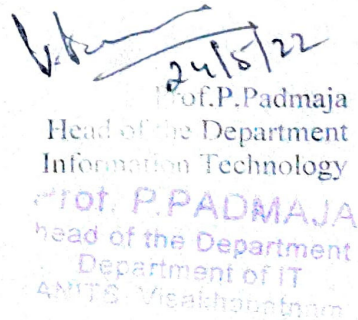 24/5/22
Prof.P.Padmaja
Head of the Department
Information Technology
Prof. P.PADMAJA
Head of the Department
Department of IT
ANITS, Visakhapatnam